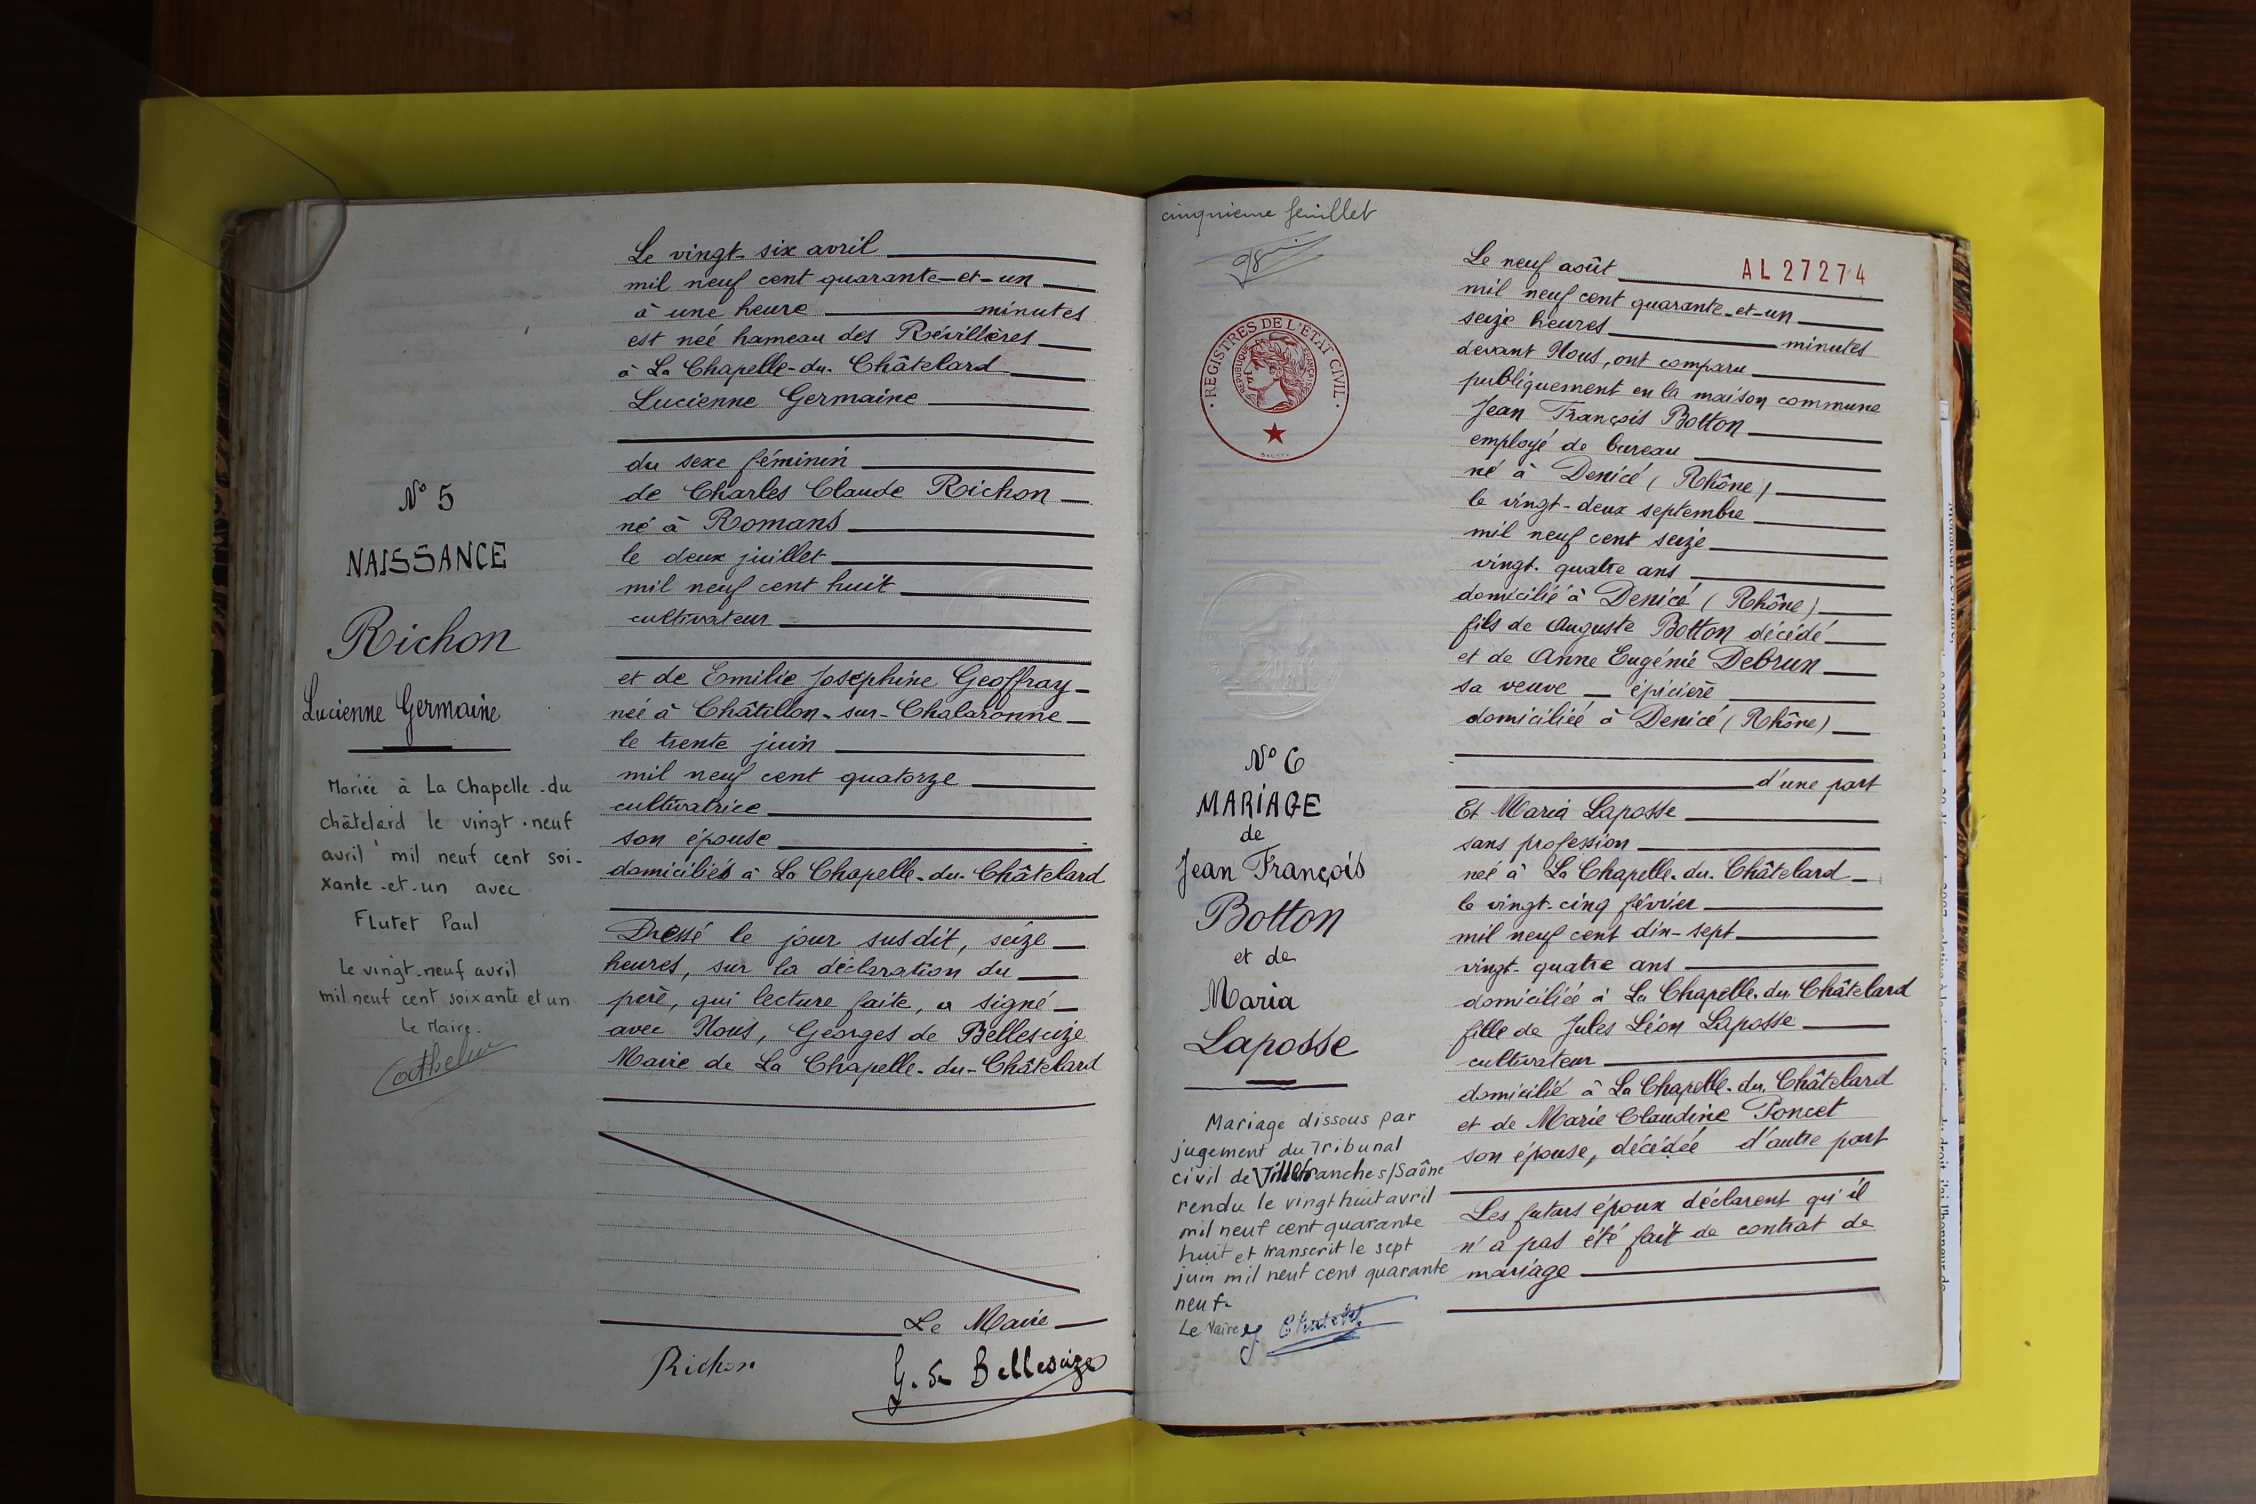 N° 5
NAISSANCE
Richon
Lucienne Germaine
Mariée à La Chapelle-du
châtelard le vingt-neuf
avril mil neuf cent soi-
xante-et-un avec
Flutet Paul
Le vingt-neuf avril
mil neuf cent soixante et un
Le Maire.
Le vingt-six avril
mil neuf cent quarante-et-un
à une heure minutes
est née hameau des Révillères
à La Chapelle-du-Châtelard
Lucienne Germaine
du sexe féminin
de Charles Claude Richon
né à Romans
le deux juillet
mil neuf cent huit
cultivateur
et de Emilie Joséphine Geoffray
née à Châtillon-sur-Chalaronne
le trente juin
mil neuf cent quatorze
cultivatrice
son épouse
domiciliés à La Chapelle-du-Châtelard
Dressé le jour susdit, seize
heures, sur la déclaration du
père, qui lecture faite, a signé
avec Nous, Georges de Bellescize
Maire de La Chapelle-du-Châtelard
Le Maire
Richon
G. de Bellescize
cinquieme feuillet
REGISTRES DE L'ÉTAT CIVIL
REPUBLIQUE FRANÇAISE
N° 6
MARIAGE
de
Jean François
Botton
et de
Maria
Laposse
Mariage dissous par
jugement du Tribunal
civil de Villefranche s/Saône
rendu le vingt huit avril
mil neuf cent quarante
huit et transcrit le sept
juin mil neuf cent quarante
neuf.
Le Maire
AL 27274
Le neuf août
mil neuf cent quarante-et-un
seize heures minutes
devant Nous, ont comparu
publiquement en la maison commune
Jean François Botton
employé de bureau
né à Denicé (Rhône)
le vingt-deux septembre
mil neuf cent seize
vingt-quatre ans
domicilié à Denicé (Rhône)
fils de Auguste Botton décédé
et de Anne Eugénie Debrun
sa veuve épicière
domiciliée à Denicé (Rhône)
d'une part
Et Maria Laposse
sans profession
née à La Chapelle-du-Châtelard
le vingt-cinq février
mil neuf cent dix-sept
vingt-quatre ans
domiciliée à La Chapelle-du-Châtelard
fille de Jules Léon Laposse
cultivateur
domicilié à La Chapelle-du-Châtelard
et de Marie Claudine Poncet
son épouse, décédée d'autre part
Les futurs époux déclarent qu'il
n'a pas été fait de contrat de
mariage